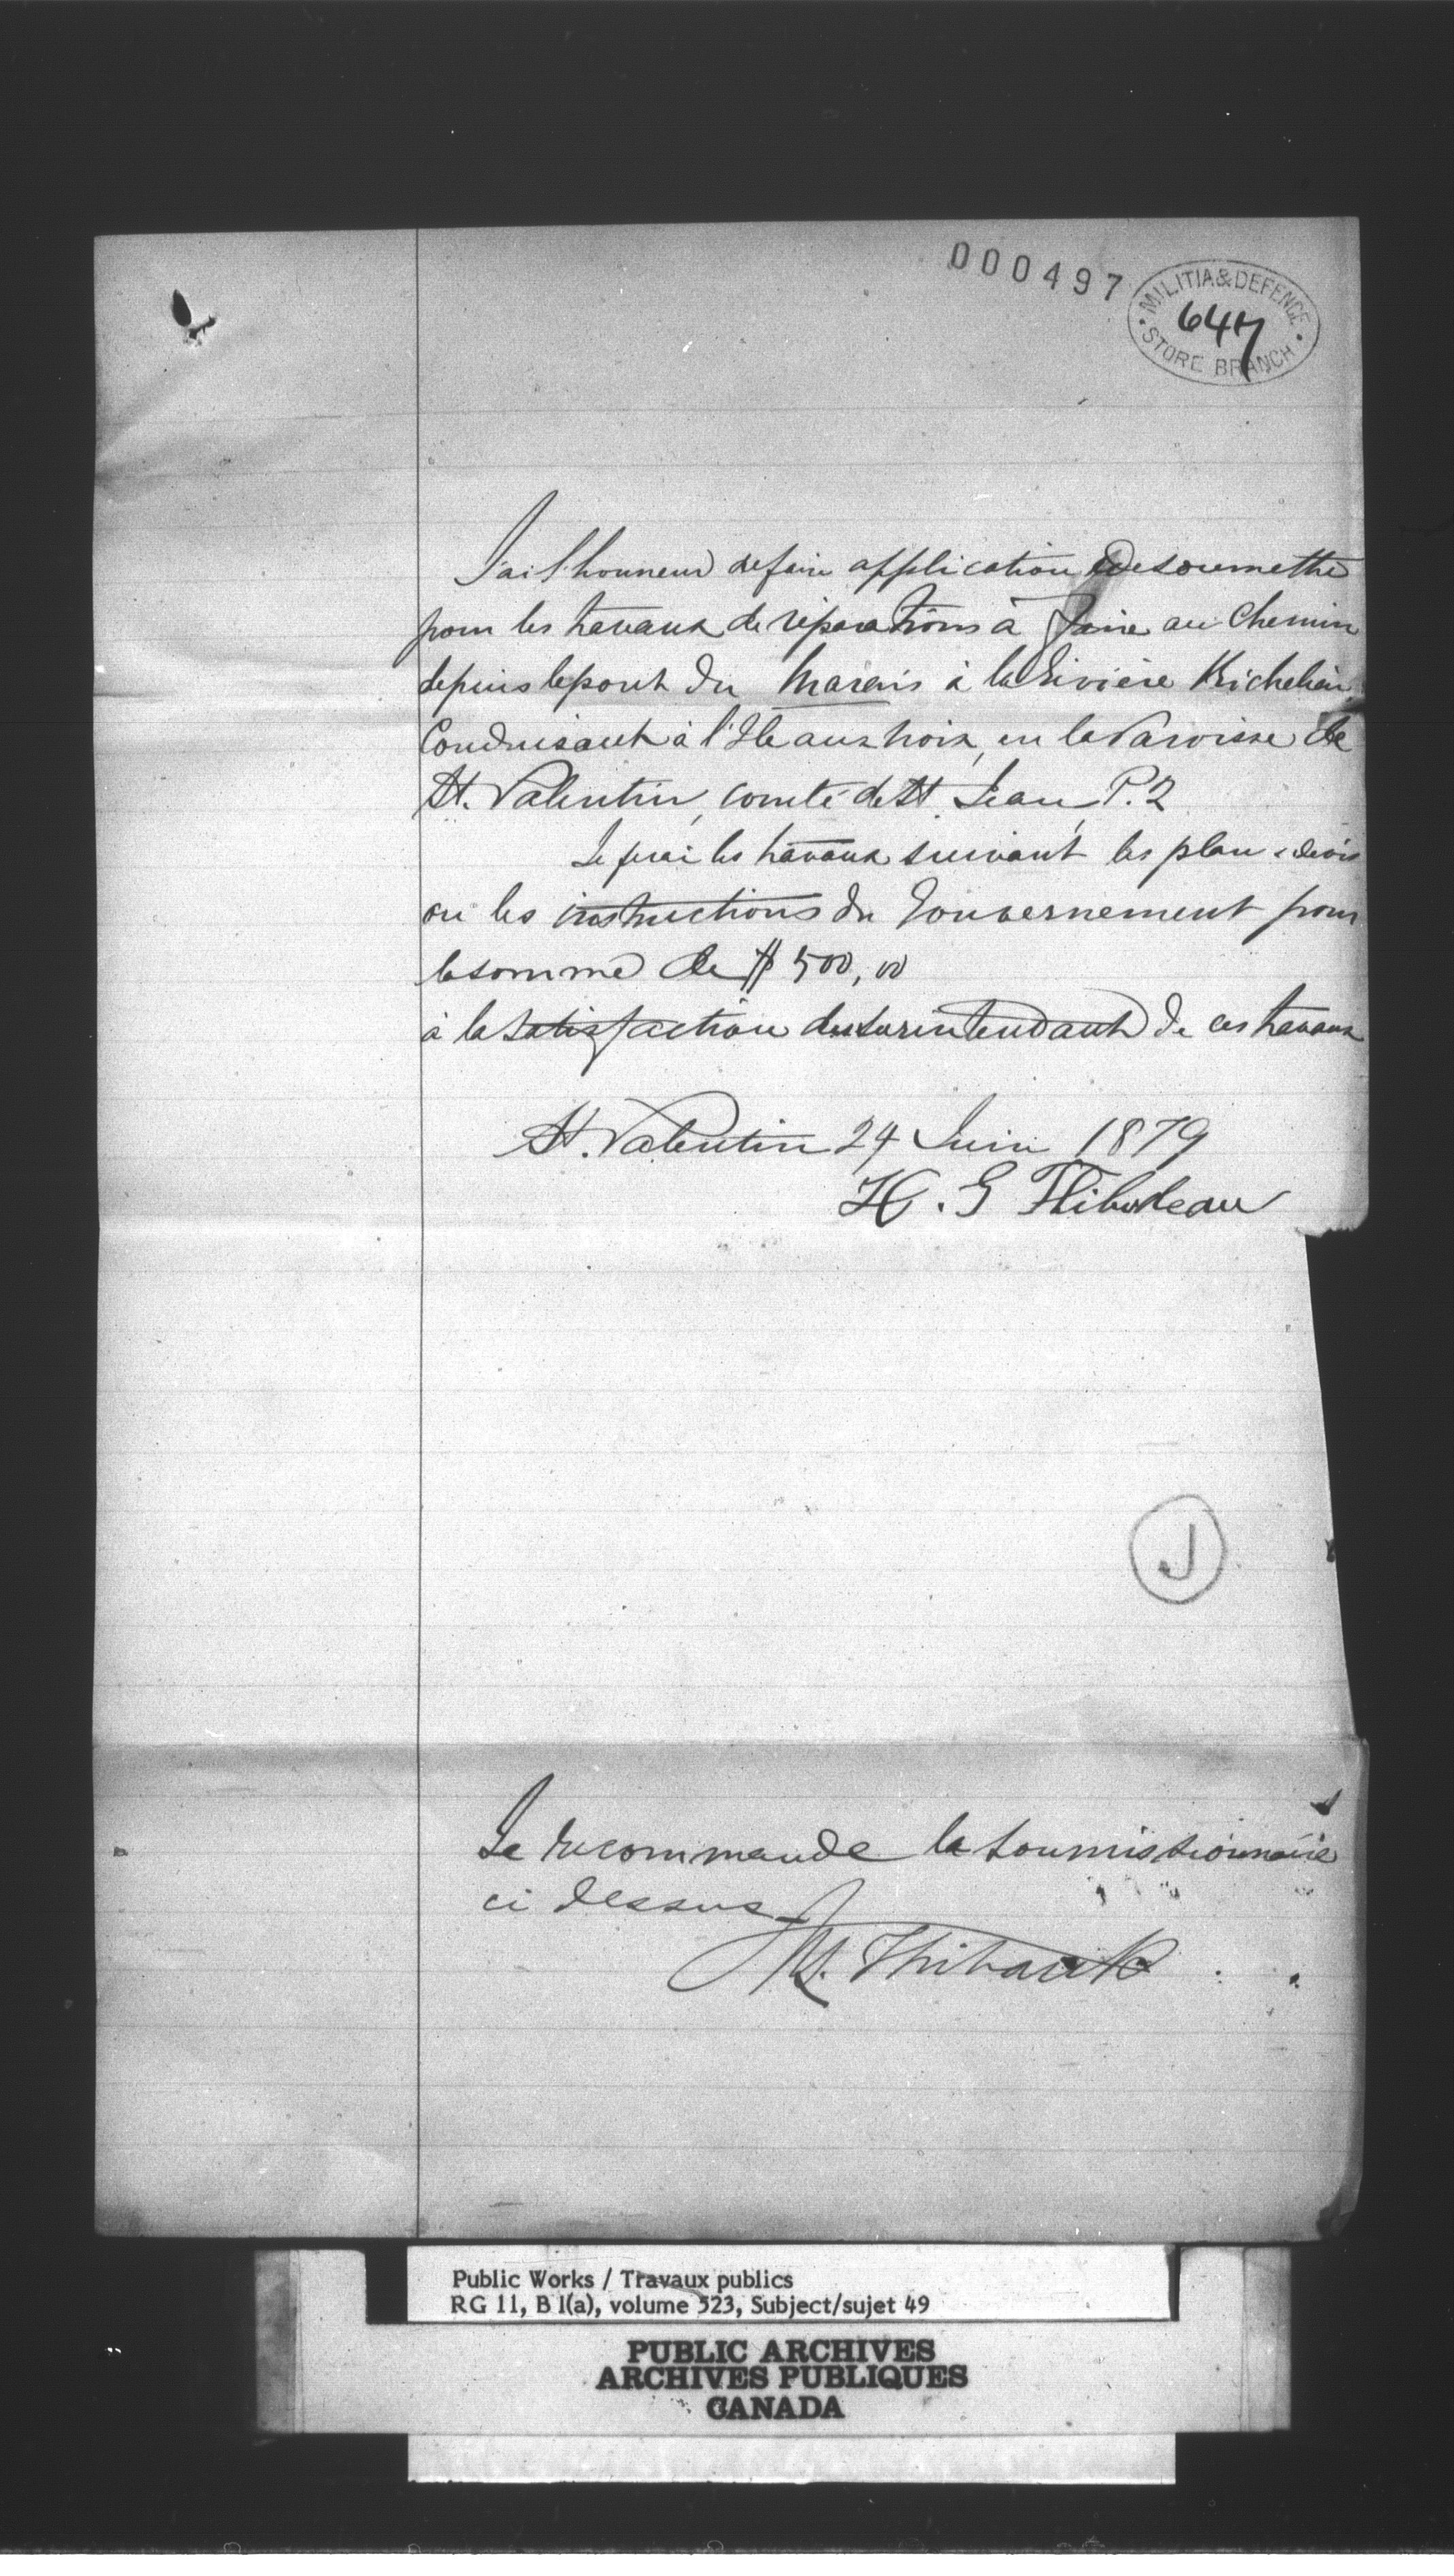 000497
MILITIA & DEFENCE
647
STORE BRANCH
J'ai l'honneur de faire application de soumettre
pour les travaux de réparations à faire au chemin
depuis le pont du Marais à la Rivière Richelieu
Conduisant à l'Ile aux noix, en la Paroisse de
St. Valentin, comté de St. Jean, P.Q
Je ferai les travaux suivant les plan & devis
ou les instructions du Gouvernement pour
la somme de $ 500,00
à la satisfaction du surintendant de ces travaux
St. Valentin 24 Juin 1879
H. G Thibodeau
J
Je recommande le soumissionnaire
ci dessus
Thibault
Public Works / Travaux publics
RG 11, B 1(a), volume 523, Subject/sujet 49
PUBLIC ARCHIVES
ARCHIVES PUBLIQUES
CANADA